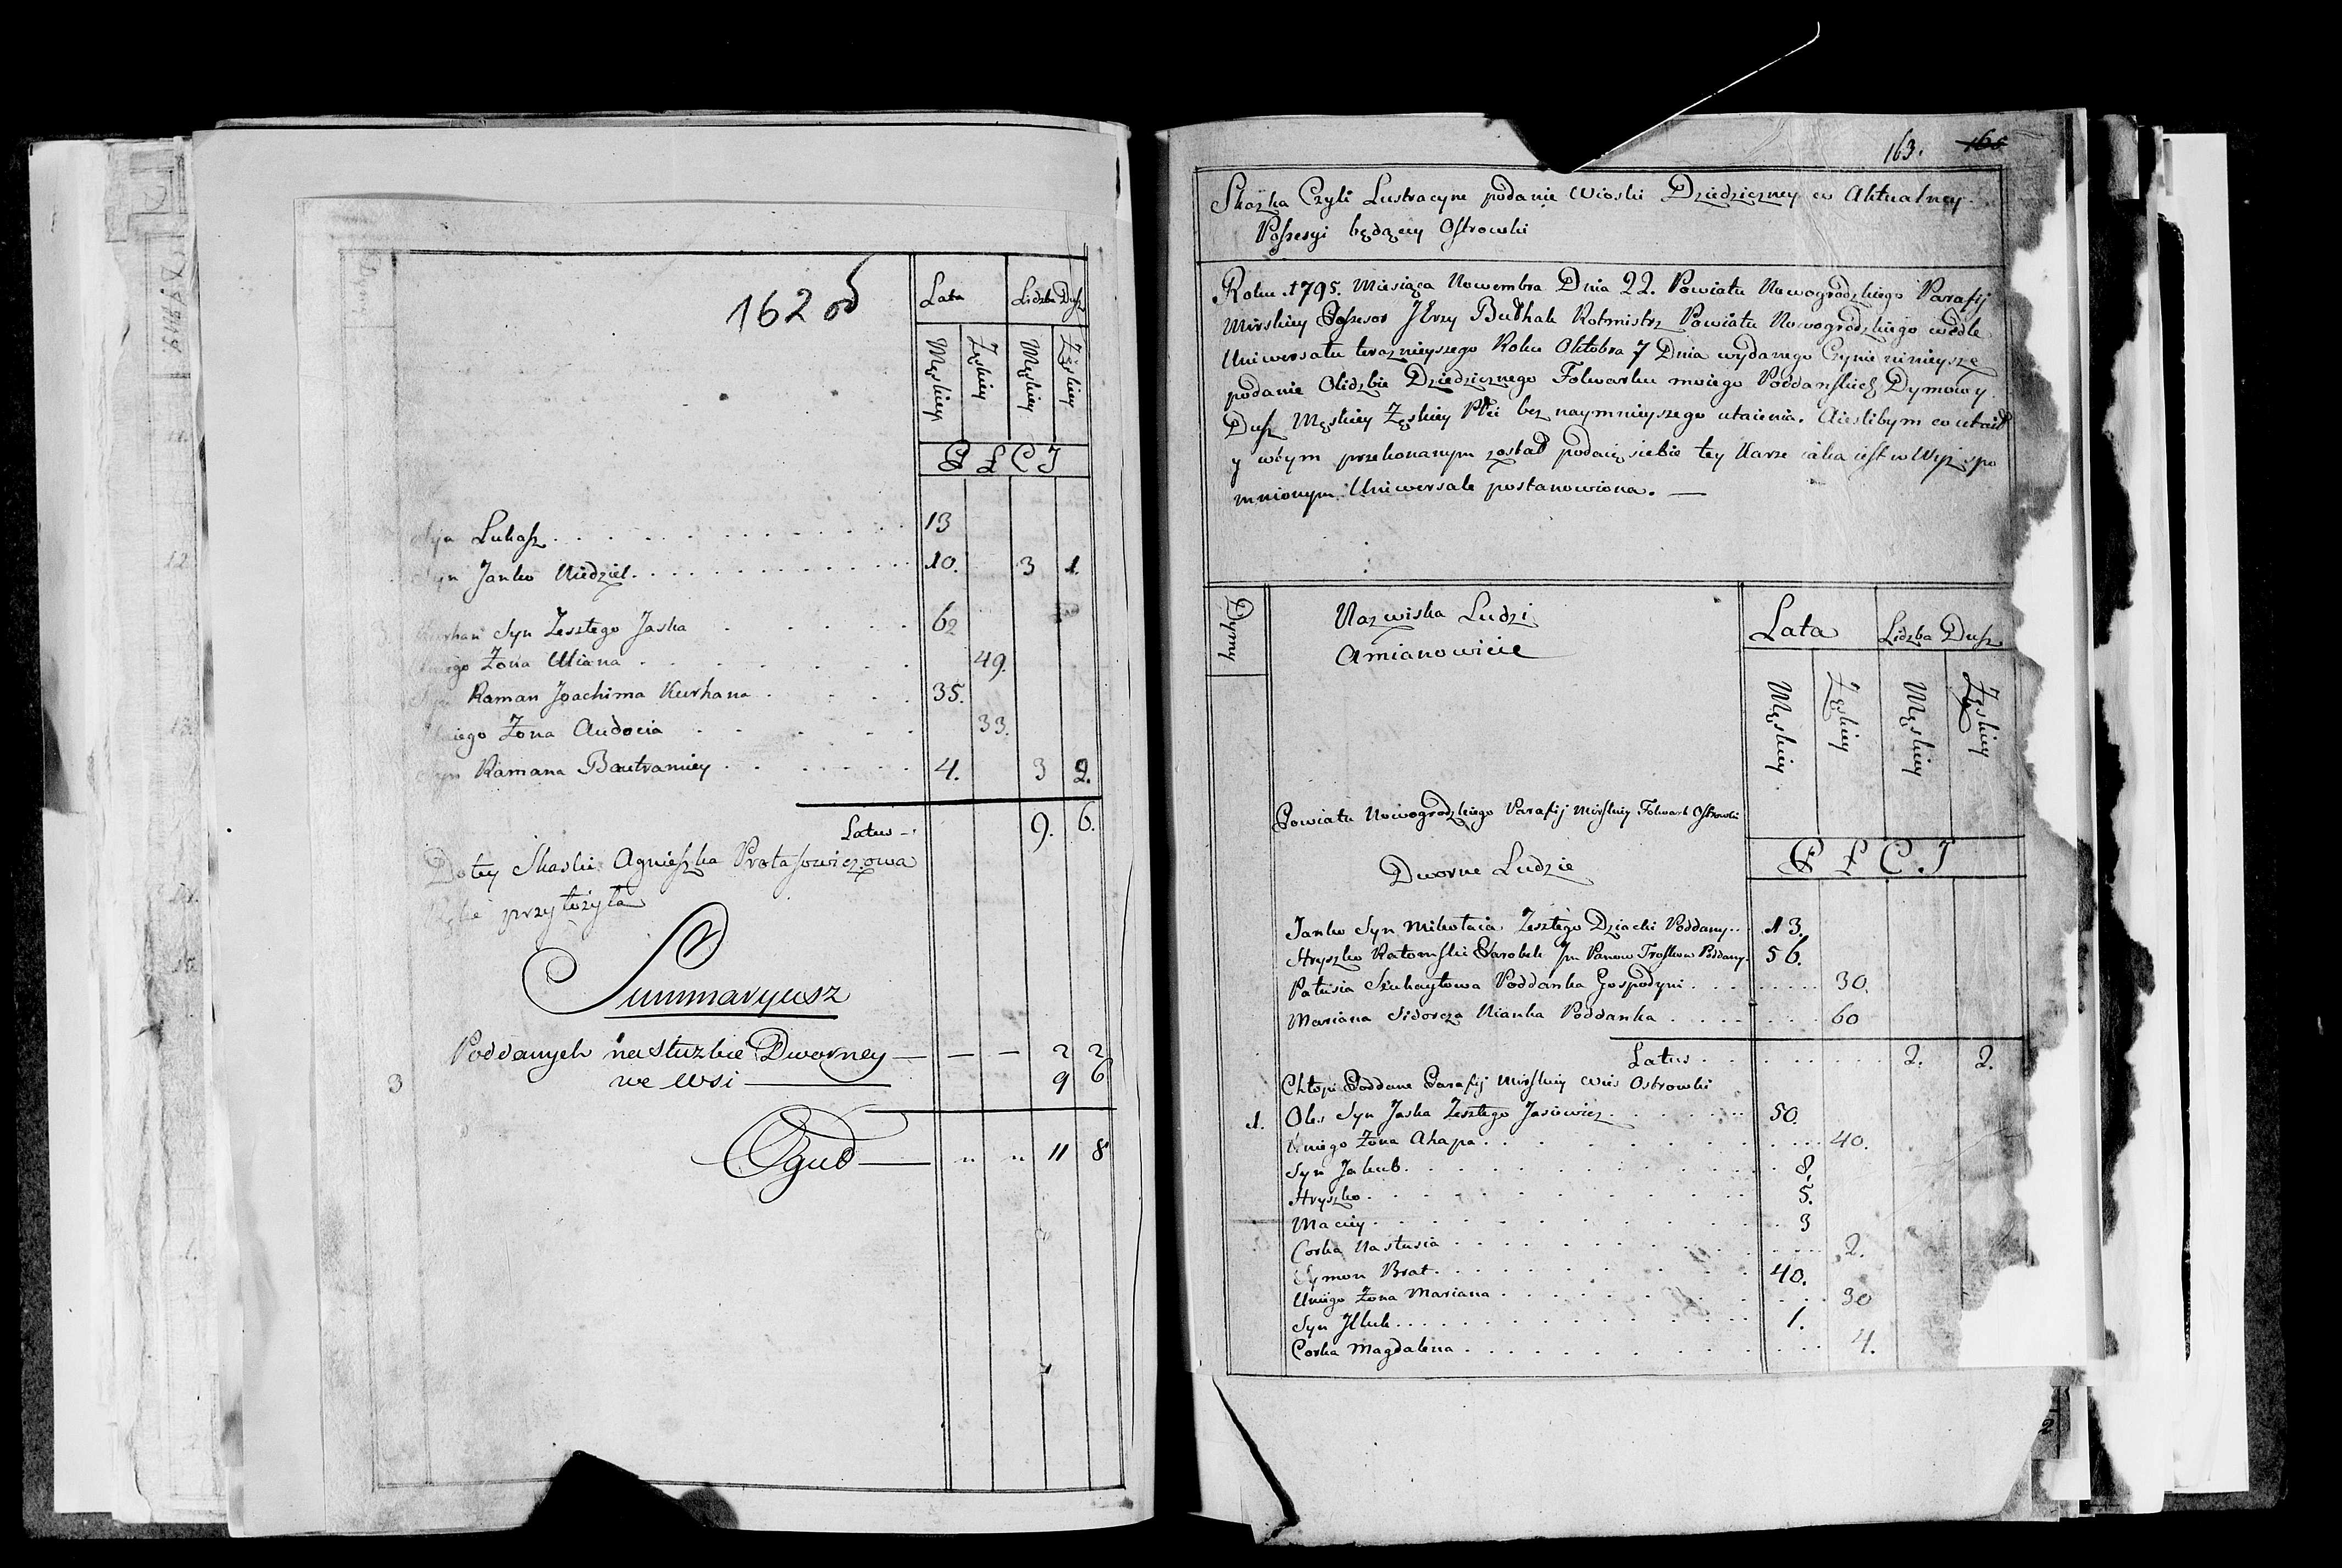 162 об
Lata Lidzba Dusz
Męskiey Zęskiey Męskiey Zęskiey
P Ł C I
Syn Lukasz 13
Syn Janko Niedziel 10. 3 1.
Kurhan Syn Zeszłego Jaska 62
Uniego Zona Uliana 49.
Syn Raman Joachima Kurhana 35.
Uniego Zona Audocia 33.
Syn Ramana Bautramiey 4. 3 2.
Latus 9. 6.
Do tey Skaski Agnieszka Protasowiczowa
Rękę przyłożyła
Summaryusz
Poddanych na Służbie Dworney — — — 2 2
3 we Wsi — 9 6
Oguł — " " 11 8
163. 165
Skazka Czyli Lustracyne podanie Wioski Dziedziczney w Aktualney
Possesyi będącey Ostrowski
Roku 1795. Miesiąca Nowembra Dnia 22. Powiatu Nowogrodzkiego Parafij
Mirskiey Possesor JErzy Bułhak Rotmistrz Powiatu Nowogrodzkiego wedle
Uniwersału teraznieyszego Roku Oktobra 7 Dnia wydanego Czynie ninieysze
podanie Olidzbie Dziedzicznego Folwarku moiego Poddanskich Dymow y
Dusz Męskiey Zęskiey Płci bez naymnieyszego utaienia. Aieslibym co utaił
y wtym przekonanym został podaię siebie tey Karze iaka iest w Wyż spo
mnionym Uniwersale postanowiona. —
Dymy
Nazwiska Ludzi
Amianowicie
Lata Lidzba Dusz
Męskiey Zęskiey Męskiey Zęskiey
Powiatu Nowogrodzkiego Parafij Mirskiey Folwark Ostrowski
P Ł C I
Dworne Ludzie
Janko Syn Mikołaia Zeszłego Dziacki Poddany 13.
Hryszko Ratomski Parobek Jm Panow Poddany 56.
Patusia Szukaytowa Poddanka Gospodyni 30.
Mariana Sidorcza Nianka Poddanka 60
Latus 2. 2.
Chłopi Poddane Parafij Mirskiey Wieś Ostrowski
1. Oles Syn Jaska Zeszłego Jasiewicz 50.
Uniego Zona Ahapa 40.
Syn Jakub 8.
Hryszko 5.
Maciey 3
Corka Nastusia 2.
Symon Brat 40.
Uniego Zona Mariana 30
Syn Illuk 1.
Corka Magdalena 4.